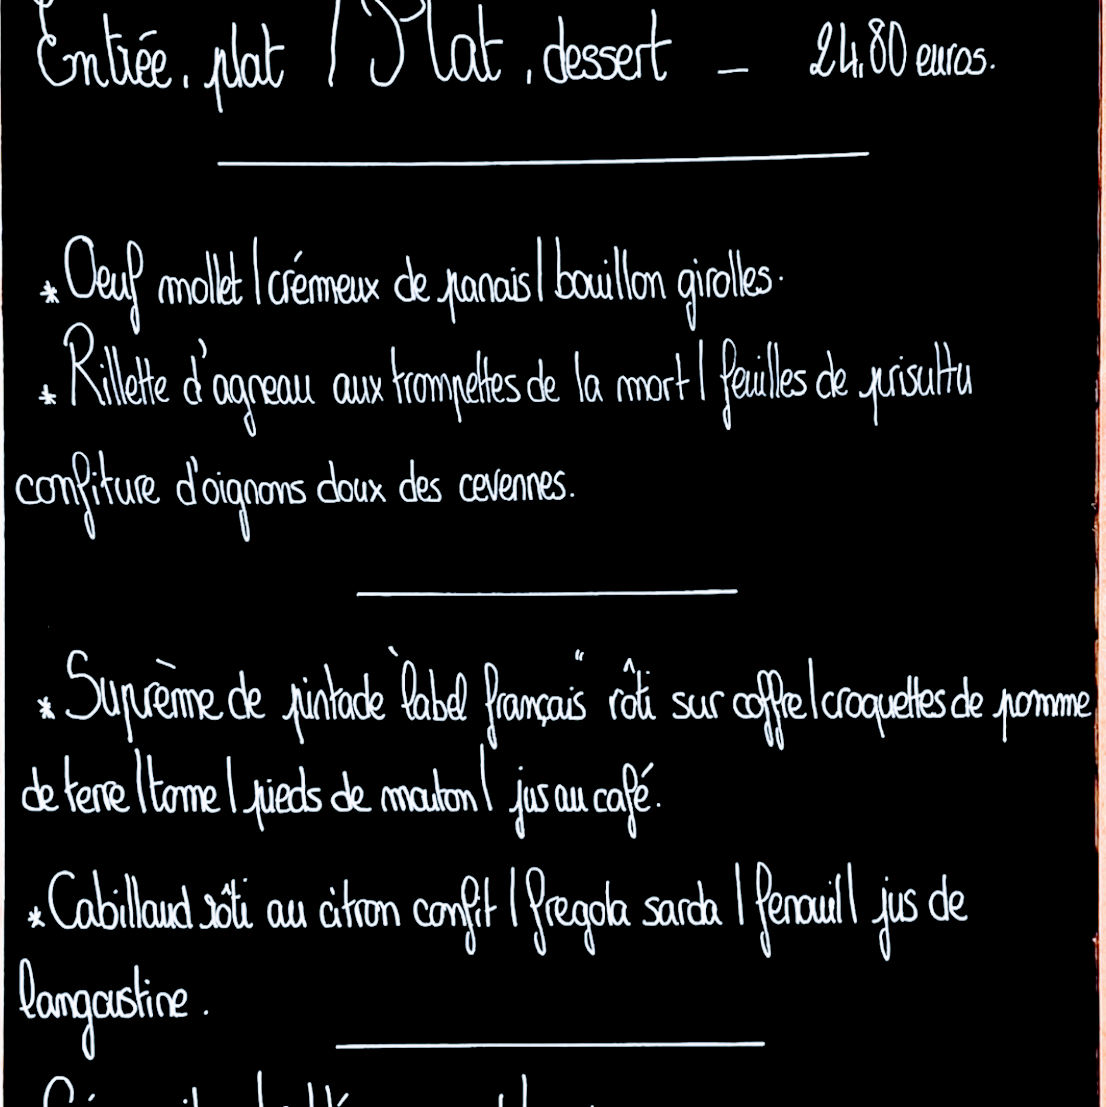 Entrée, plat / Plat, dessert – 24,80 euros.
* Oeuf mollet | crémeux de panais | bouillon girolles.
* Rillette d'agneau aux trompettes de la mort | feuilles de prisuttu
confiture d'oignons doux des cevennes.
* Suprême de pintade "label français" rôti sur coffre | croquettes de pomme
de terre | tome | pieds de mouton | jus au café.
* Cabillaud rôti au citron confit | fregola sarda | fenouil | jus de
langoustine.